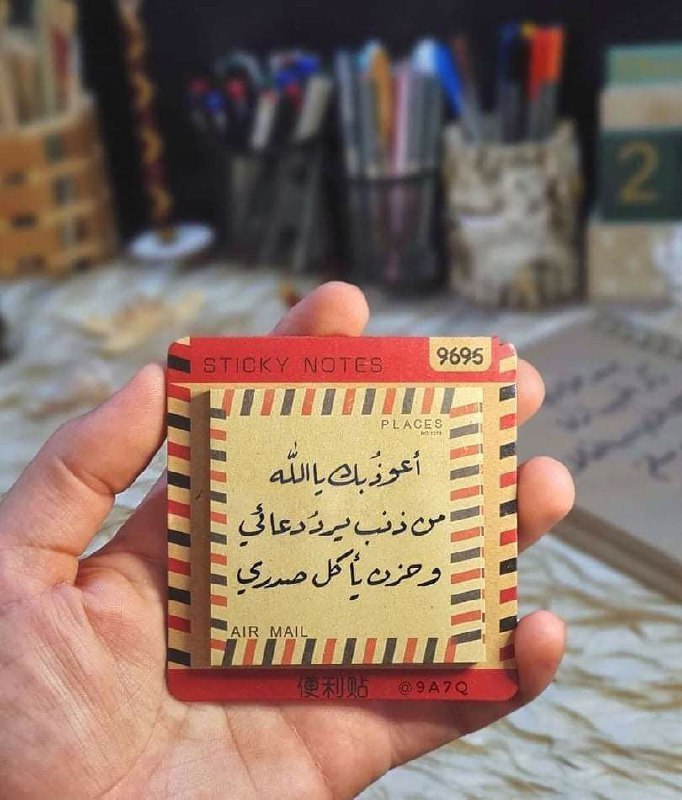 STICKY NOTES
9695
PLACES
أعوذُ بك يا الله
من ذنب يردُ دعائي
وحزن يأكل صدري
AIR MAIL
便利贴 @9A7Q
2